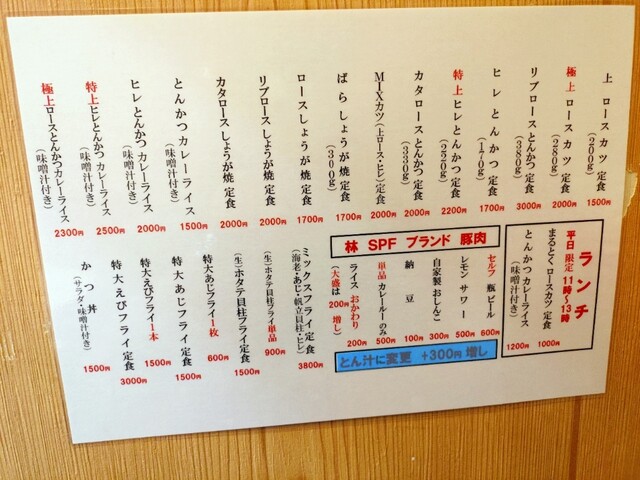 上ロースカツ定食(200g) 1500円
極上ロースカツ定食(280g) 2000円
リブロースとんかつ定食(380g) 3000円
ヒレとんかつ定食(170g) 1700円
特上ヒレとんかつ定食(220g) 2200円
カタロースとんかつ定食(330g) 2000円
MIXカツ(上ロース・ヒレ)定食 2000円
ばらしょうが焼定食(300g) 1700円
ロースしょうが焼定食 1700円
リブロースしょうが焼定食 2000円
カタロースしょうが焼定食 2000円
とんかつカレーライス(味噌汁付き) 1500円
ヒレとんかつカレーライス(味噌汁付き) 2000円
特上ヒレとんかつカレーライス(味噌汁付き) 2500円
極上ロースとんかつカレーライス(味噌汁付き) 2300円
ランチ
平日限定11時〜13時
まるとくロースカツ定食 1000円
とんかつカレーライス(味噌汁付き) 1200円
林 SPF ブランド 豚肉
セルフ 瓶ビール 600円
レモンサワー 500円
自家製おしんこ 300円
納豆 100円
単品カレールーのみ 500円
ライスおかわり(大盛は200円増し) 200円
とん汁に変更 +300円増し
ミックスフライ定食(海老・あじ・帆立貝柱・ヒレ) 3800円
(生)ホタテ貝柱フライ単品 900円
(生)ホタテ貝柱フライ定食 1500円
特大あじフライ1枚 600円
特大あじフライ定食 1500円
特大えびフライ1本 1500円
特大えびフライ定食 3000円
かつ丼(サラダ・味噌汁付き) 1500円